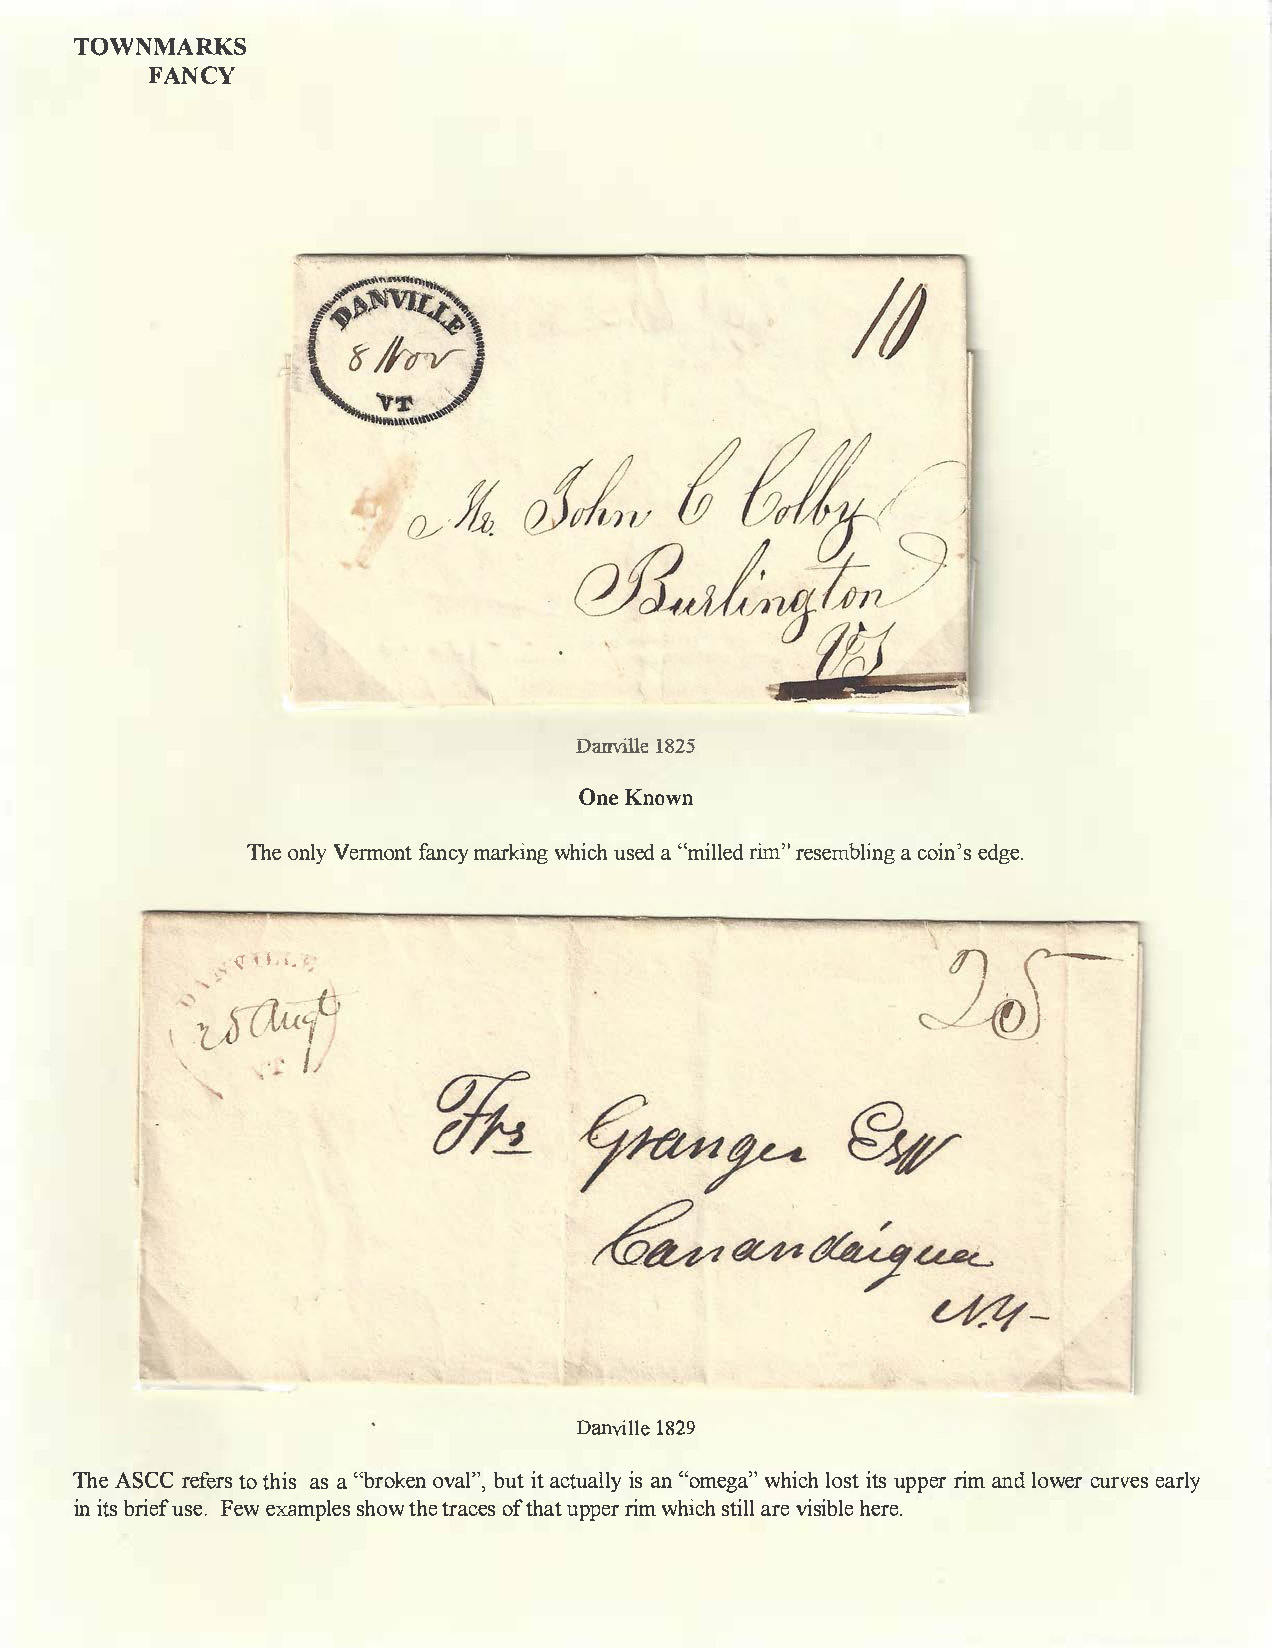 TOWNMARKS
FANCY
DANVILLE
8 Nov
VT
10
Mr. John C Colby
Burlington
Vt
Danville 1825
One Known
The only Vermont fancy marking which used a “milled rim” resembling a coin’s edge.
DANVILLE
25 Augt
VT
25
Frs Granger Esqr
Canandaigua
N.Y-
Danville 1829
The ASCC refers to this as a “broken oval”, but it actually is an “omega” which lost its upper rim and lower curves early
in its brief use. Few examples show the traces of that upper rim which still are visible here.